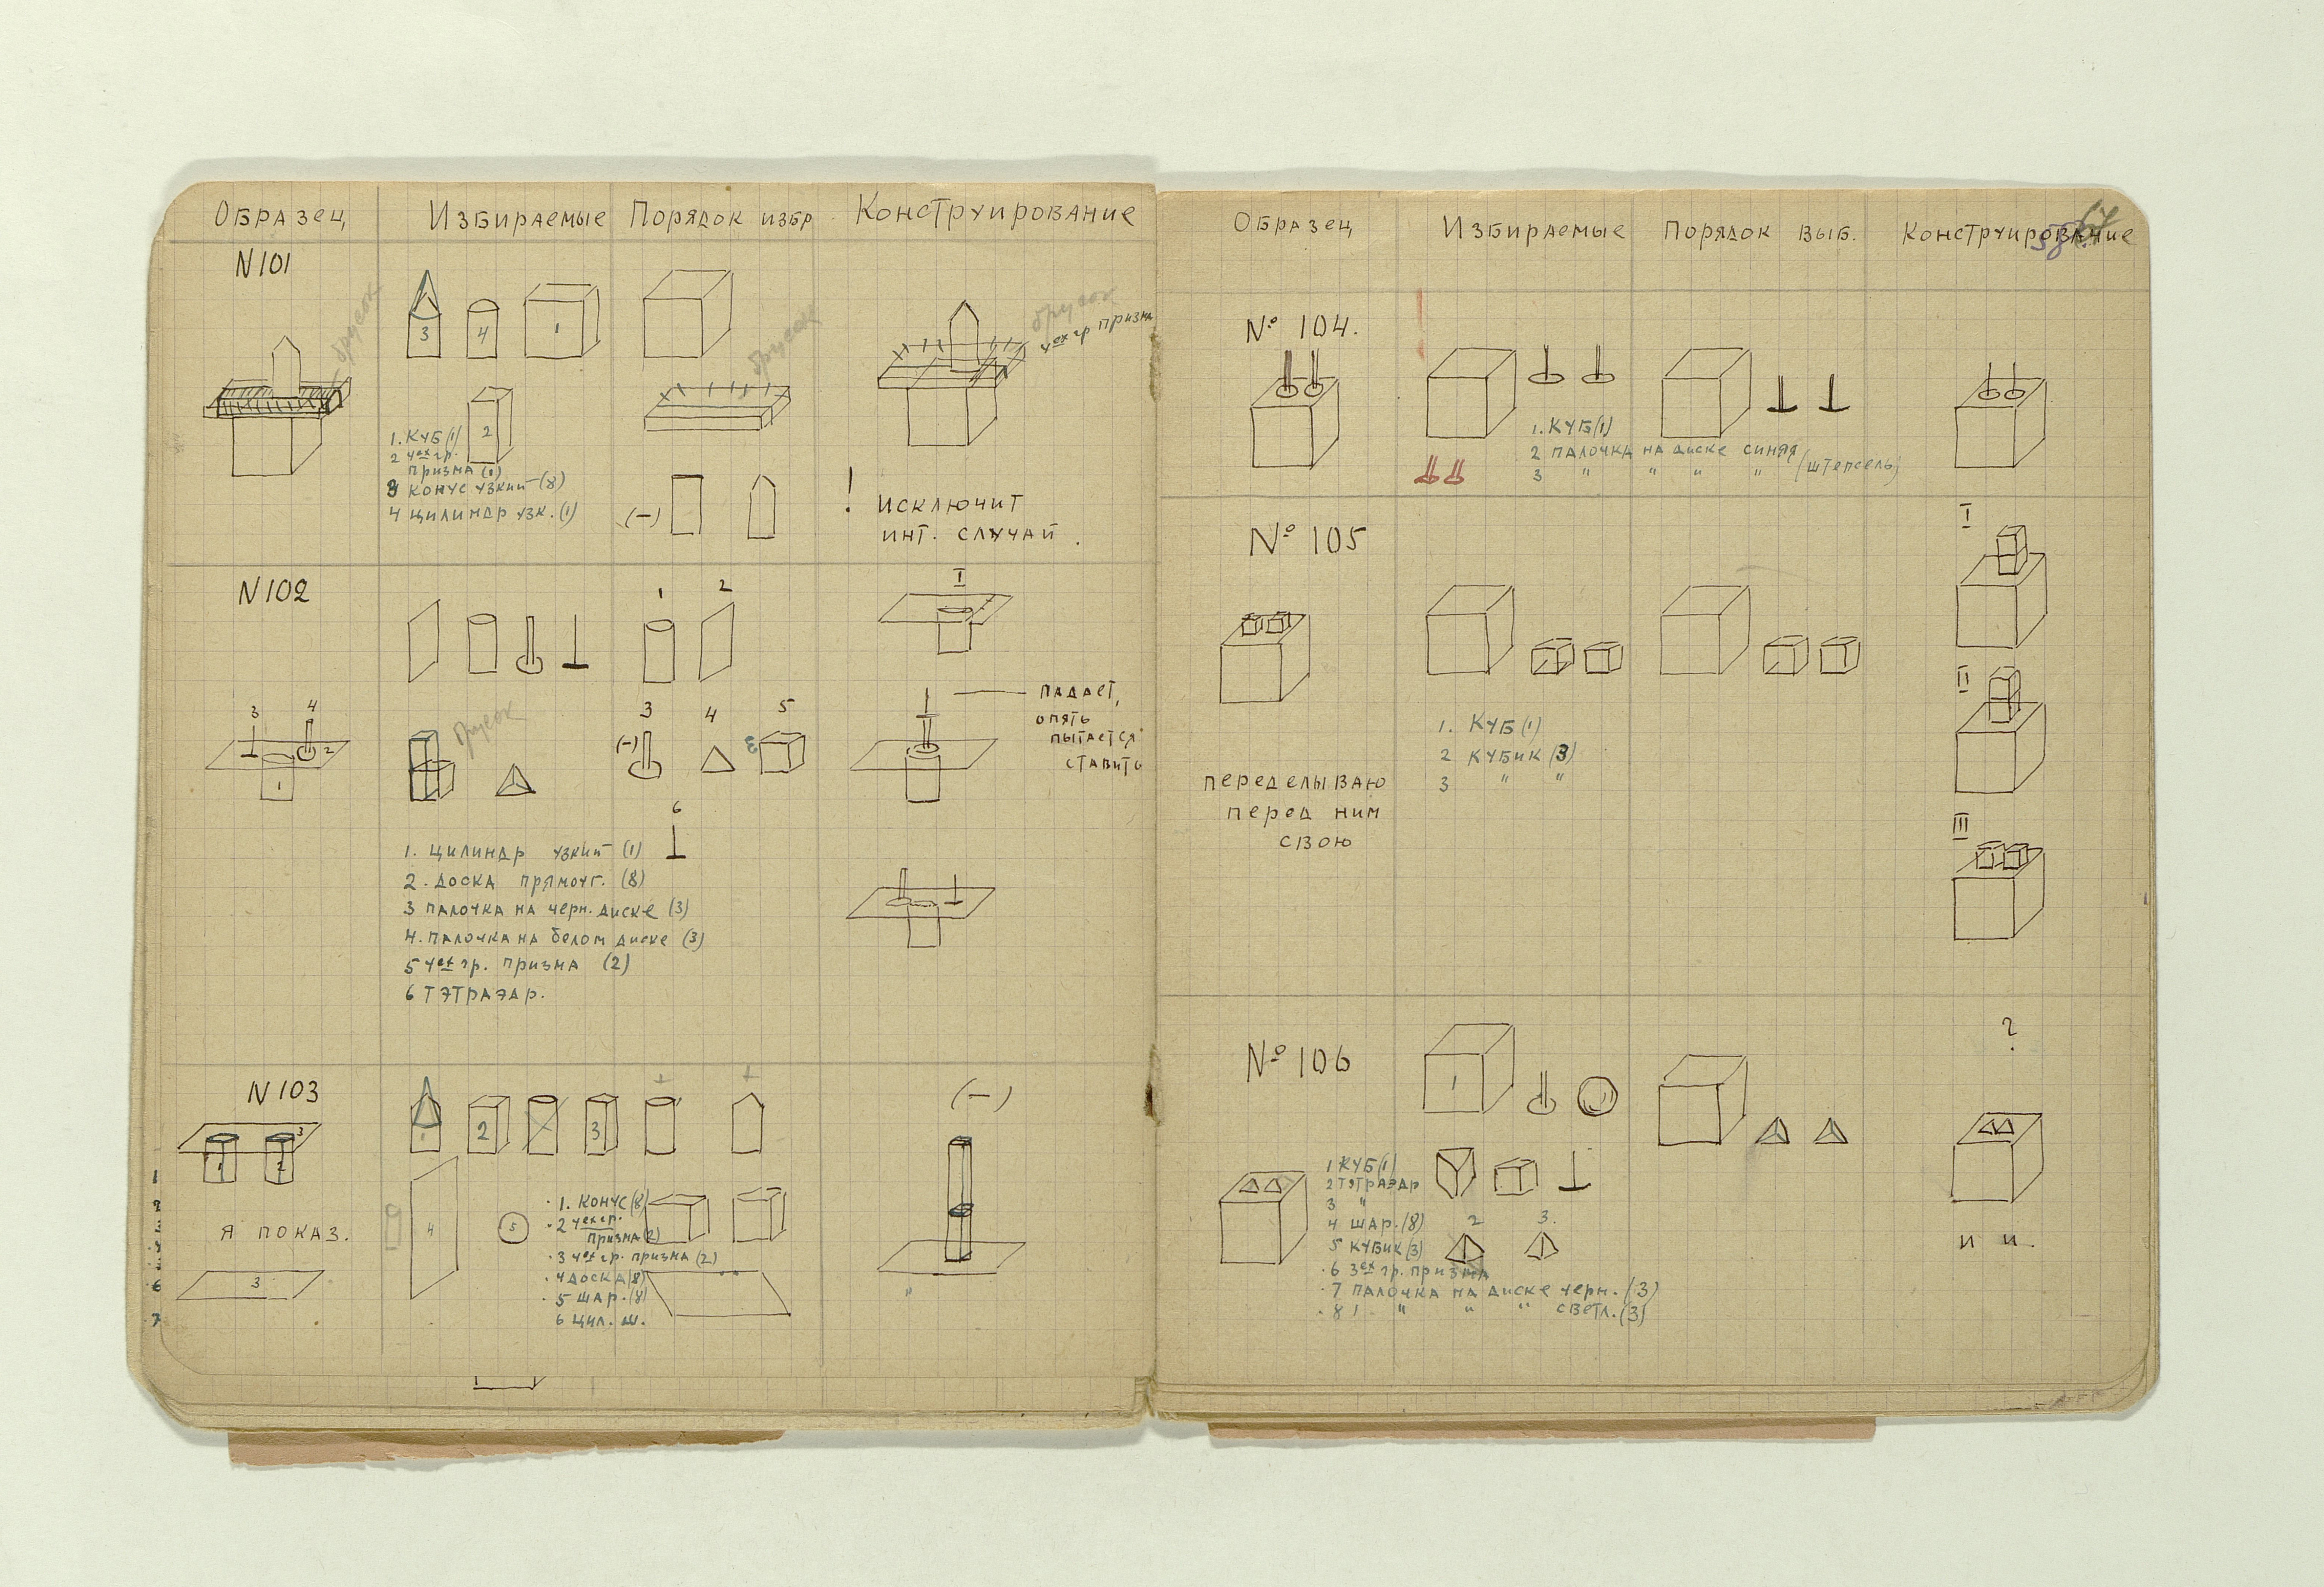 Образец Избираемые Порядок избр Конструирование
N 101
брусок
3 4 1
2
1. Куб (1)
2 4ех гр.
призма (1)
3 конус узкий (8)
4 цилиндр узк. (1)
брусок
(—)
брусок
4ех гр призма
! исключит
инт. случай.
N 102
3 4
2
1
брусок
1. цилиндр узкий (1)
2. доска прямоуг. (8)
3 палочка на черн. диске (3)
4. палочка на белом диске (3)
5 4ех гр. призма (2)
6 тэтраэдр.
1 2
3 4 5
(—)
6
I
падает,
опять
пытается
ставить
N 103
3
1 2
я показ.
3
1
2
3
4
5
6
7
2 3
4 5
1. конус (8)
2 4ех гр.
призма (2)
3 4ех гр. призма (2)
4 доска (8)
5 шар. (8)
6 цил. ш.
(—)
Образец Избираемые Порядок выб. Конструирование
58
67
№ 104.
1. Куб (1)
2 палочка на диске синяя
3 " " " " (штепсель)
№ 105
переделываю
перед ним
свою
1. Куб (1)
2 кубик (3)
3 " "
I
II
III
№ 106
1
1 Куб (1)
2 тэтраэдр
3 "
4 шар. (8)
5 кубик (3)
6 3ех гр. призма
7 палочка на диске черн. (3)
8 " " " светл. (3)
2 3.
?
и и